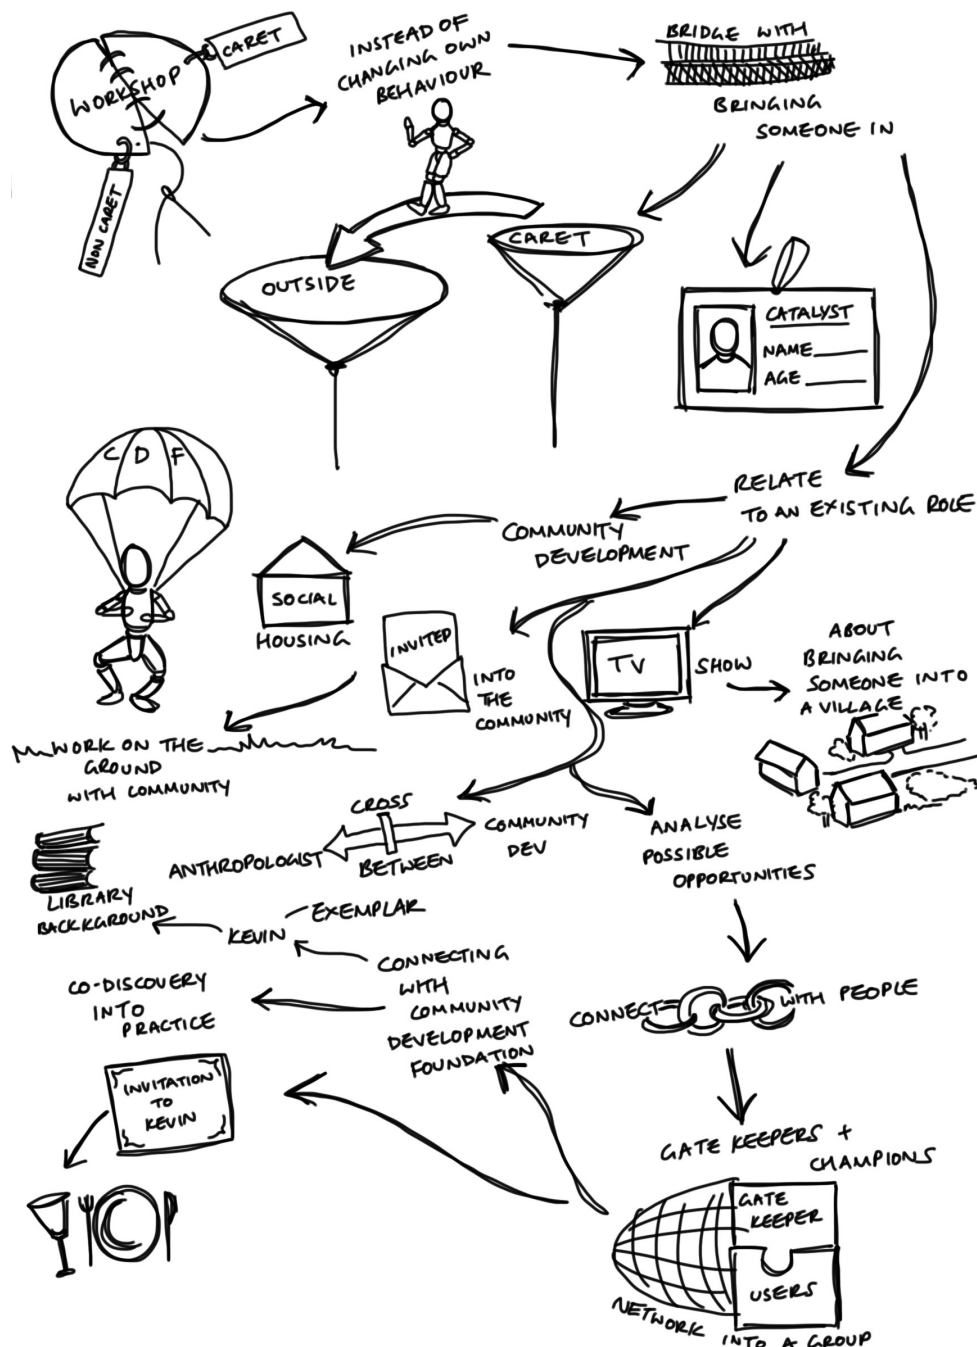 CARET
WORKSHOP
NON CARET
INSTEAD OF
CHANGING OWN
BEHAVIOUR
BRIDGE WITH
BRINGING
SOMEONE IN
OUTSIDE
CARET
CATALYST
NAME
AGE
CDF
RELATE
TO AN EXISTING ROLE
COMMUNITY
DEVELOPMENT
SOCIAL
HOUSING
INVITED
INTO
THE
COMMUNITY
TV
SHOW
ABOUT
BRINGING
SOMEONE INTO
A VILLAGE
WORK ON THE
GROUND
WITH COMMUNITY
CROSS
BETWEEN
ANTHROPOLOGIST
COMMUNITY
DEV
ANALYSE
POSSIBLE
OPPORTUNITIES
LIBRARY
BACKKGROUND
KEVIN
EXEMPLAR
CONNECTING
WITH
COMMUNITY
DEVELOPMENT
FOUNDATION
CO-DISCOVERY
INTO
PRACTICE
CONNECT WITH PEOPLE
INVITATION
TO
KEVIN
GATE KEEPERS +
CHAMPIONS
GATE
KEEPER
USERS
NETWORK INTO A GROUP